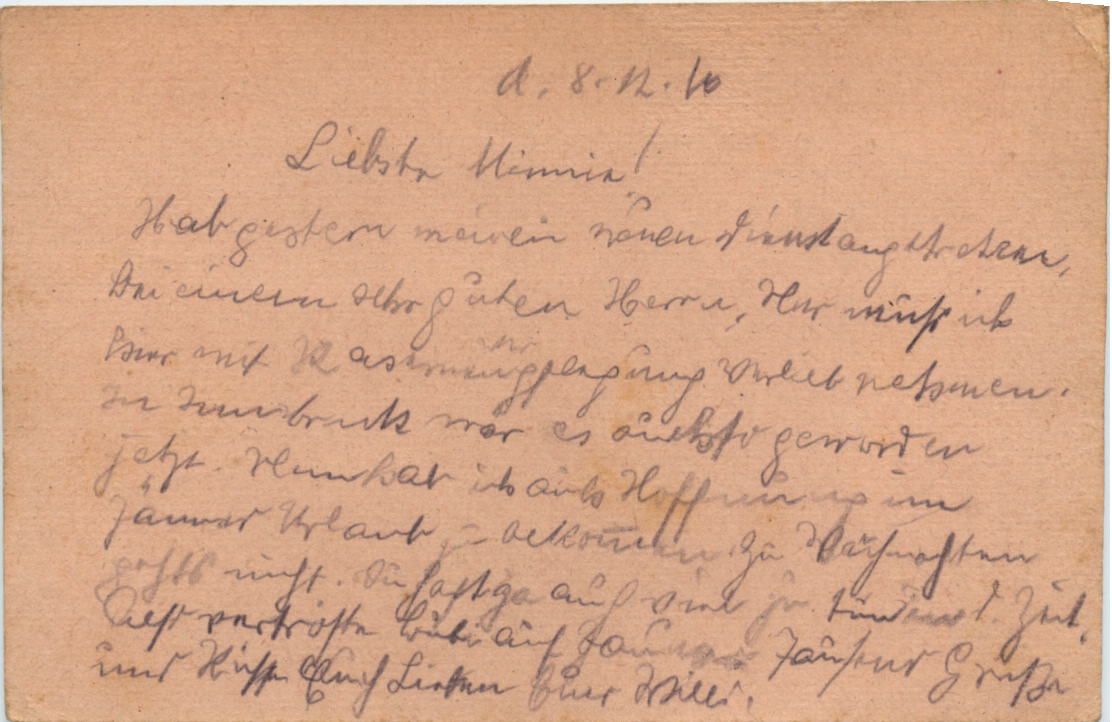 d. 8.12.16
Liebste Minnie!
Hab gestern meinen neuen Dienst angetreten,
bei einem sehr guten Herrn, Nur muß ich
hier mit Kasernverpflegung vorlieb nehmen.
In Innsbruck wär es auch so geworden
jetzt. Nun hab ich auch Hoffnung im
Jänner Urlaub zu bekommen. Zu Weihnachten
gehts nicht. Du hast ja auch viel zu tun in d. Zeit,
Also vertröste auf Jänner Tausend Grüße
und Küsse Euch Lieben Euer Willi.